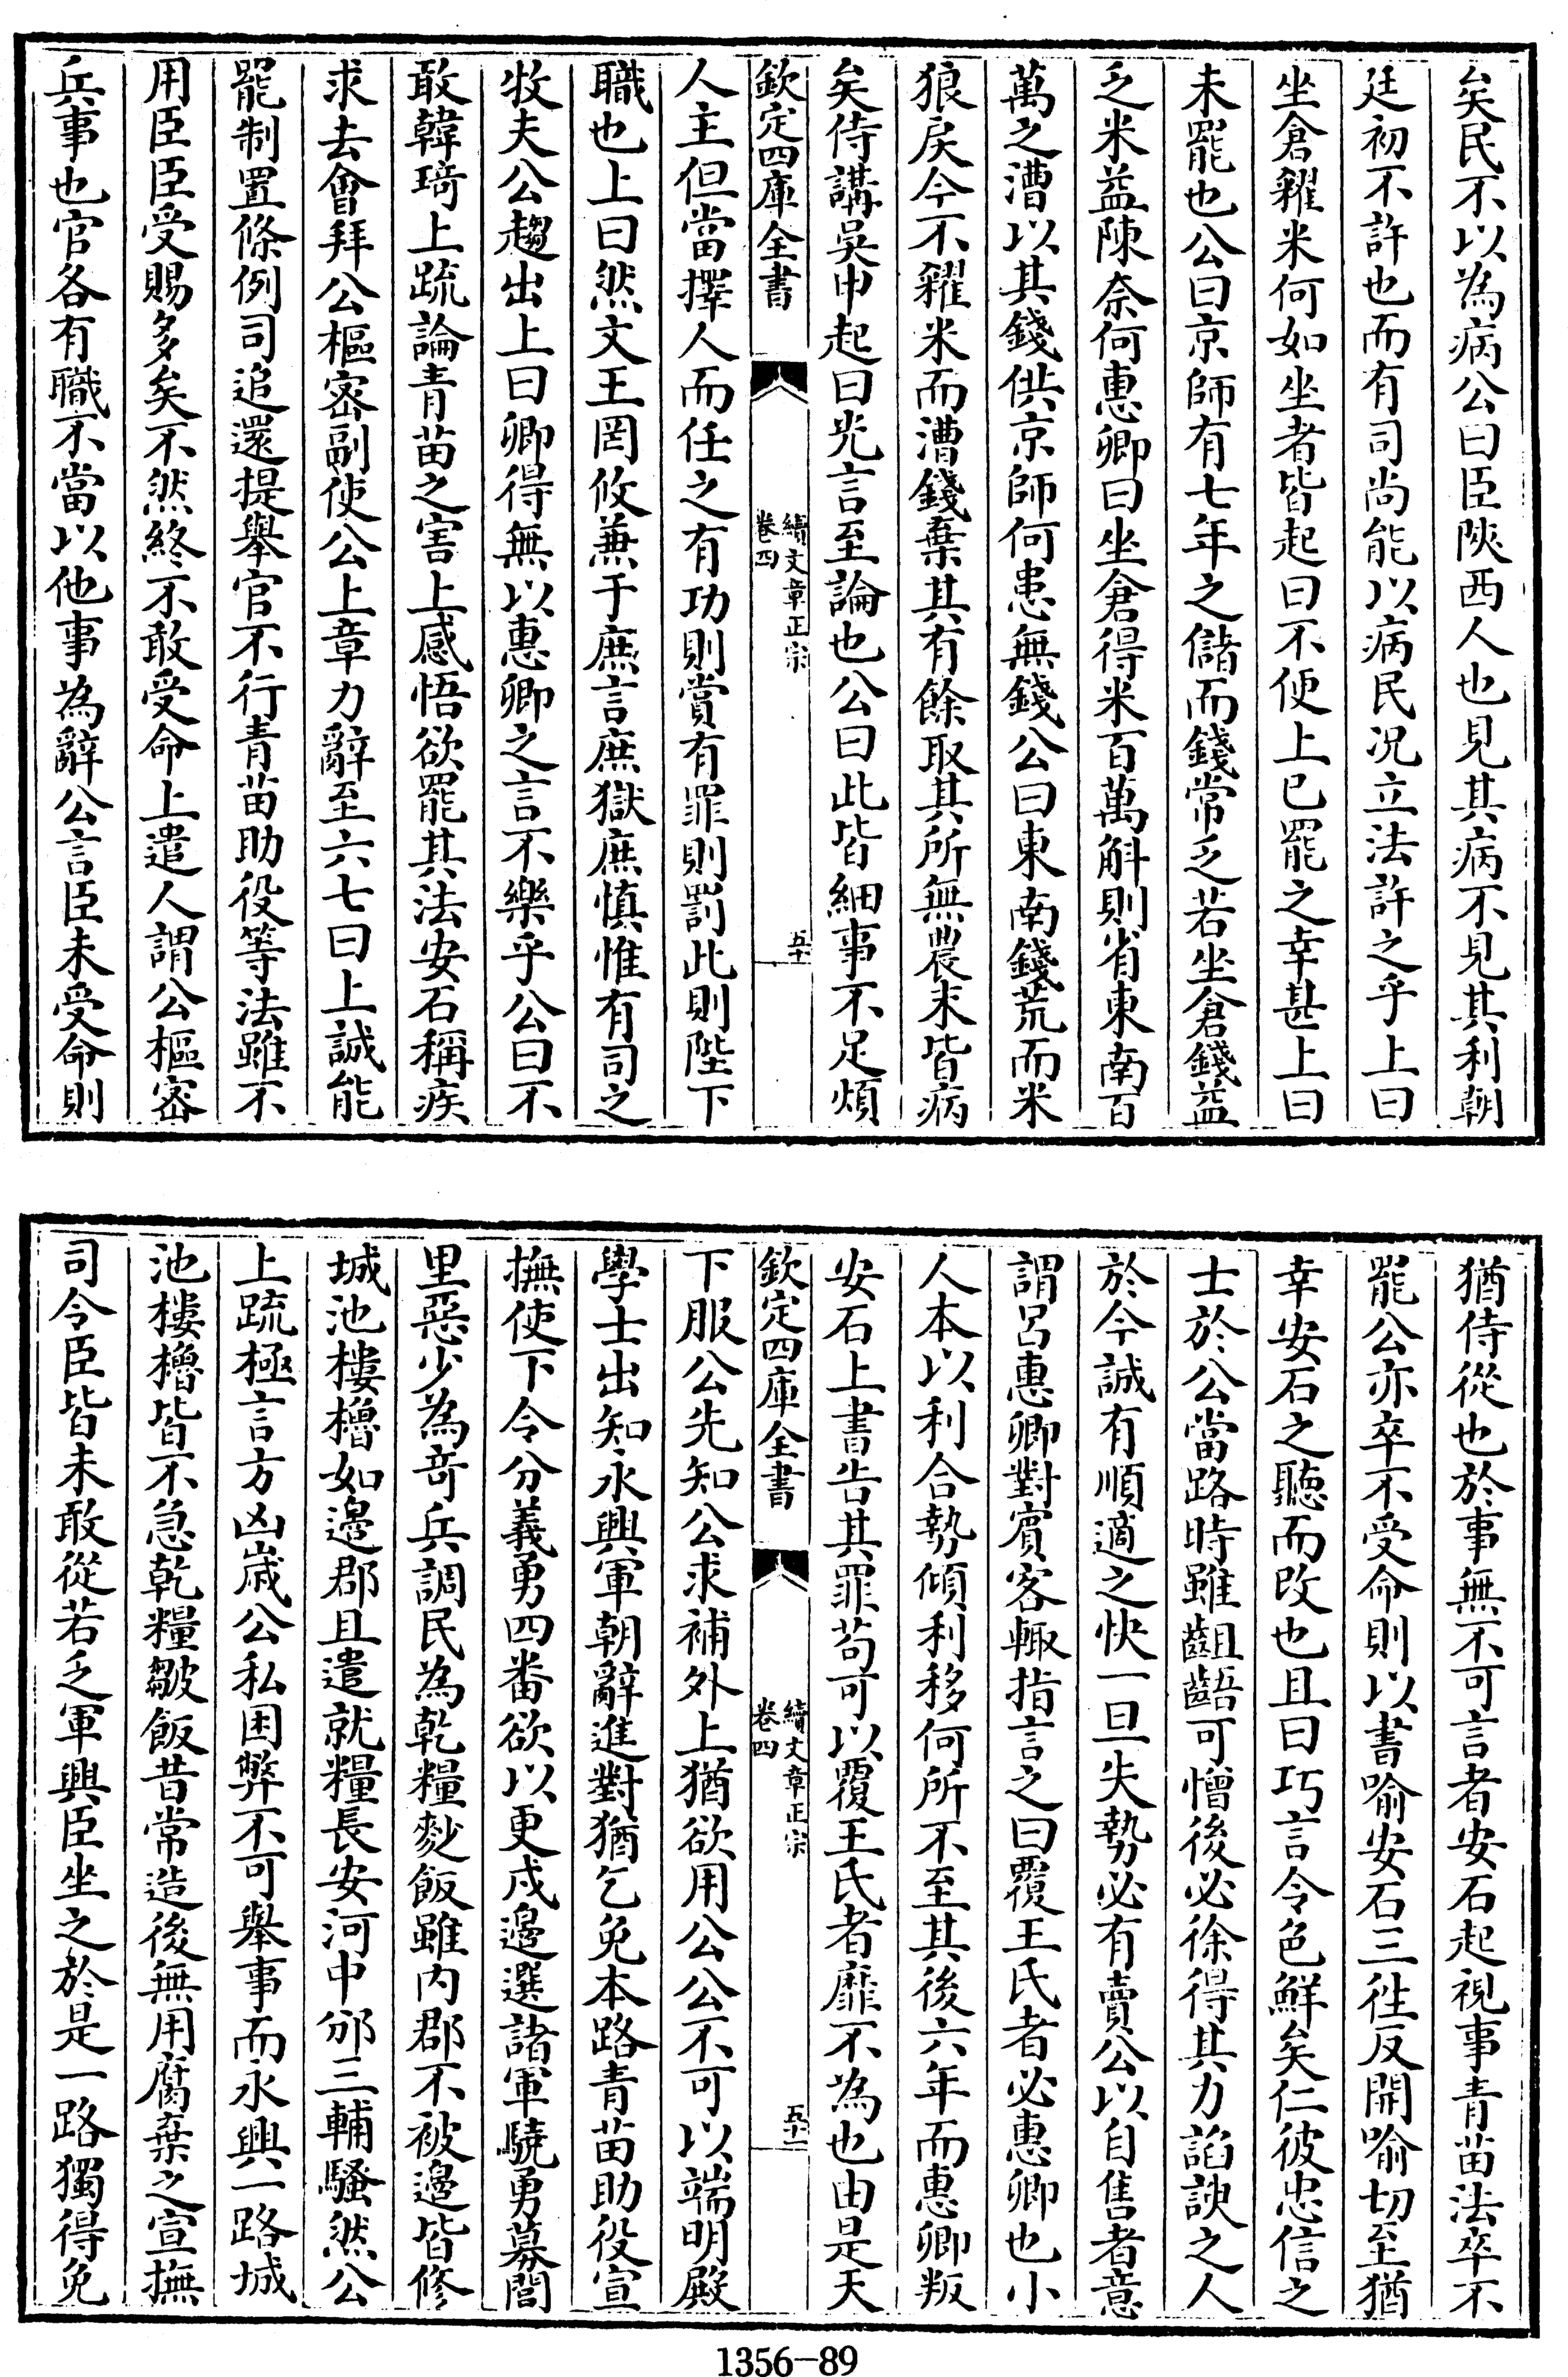 矣民不以為病公曰臣陜西人也見其病不見其利朝
廷初不許也而有司尚能以病民况立法許之乎上曰
坐倉糴米何如坐者皆起曰不便上已罷之幸甚上曰
未罷也公曰京師有七年之儲而錢常乏若坐倉錢益
乏米益陳奈何惠卿曰坐倉得米百萬斛則省東南百
萬之漕以其錢供京師何患無錢公曰東南錢荒而米
狼戾今不糴米而漕錢棄其有餘取其所無農末皆病
矣侍講吳申起曰光言至論也公曰此皆細事不足煩
欽定四庫全書
續文章正宗
卷四
五十
人主但當擇人而任之有功則賞有罪則罰此則陛下
職也上曰然文王罔攸兼于庶言庶獄庶慎惟有司之
牧夫公趨出上曰卿得無以惠卿之言不樂乎公曰不
敢韓琦上疏論青苗之害上感悟欲罷其法安石稱疾
求去會拜公樞密副使公上章力辭至六七曰上誠能
罷制置條例司追還提舉官不行青苗助役等法雖不
用臣臣受賜多矣不然終不敢受命上遣人謂公樞密
兵事也官各有職不當以他事為辭公言臣未受命則
猶侍從也於事無不可言者安石起視事青苗法卒不
罷公亦卒不受命則以書喻安石三徃反開喻切至猶
幸安石之聽而改也且曰巧言令色鮮矣仁彼忠信之
士於公當路時雖齟齬可憎後必徐得其力諂諛之人
於今誠有順適之快一旦失勢必有賣公以自售者意
謂呂惠卿對賓客輙指言之曰覆王氏者必惠卿也小
人本以利合勢傾利移何所不至其後六年而惠卿叛
安石上書告其罪苟可以覆王氏者靡不為也由是天
欽定四庫全書
續文章正宗
卷四
五十一
下服公先知公求補外上猶欲用公公不可以端明殿
學士出知永興軍朝辭進對猶乞免本路青苗助役宣
撫使下令分義勇四番欲以更戍邊選諸軍驍勇募閭
里惡少為竒兵調民為乾糧麨飯雖内郡不被邊皆修
城池樓櫓如邊郡且遣就糧長安河中邠三輔騷然公
上疏極言方凶嵗公私困弊不可舉事而永興一路城
池樓櫓皆不急乾糧皺飯昔常造後無用腐棄之宣撫
司令臣皆未敢從若乏軍興臣坐之於是一路獨得免
1356-89